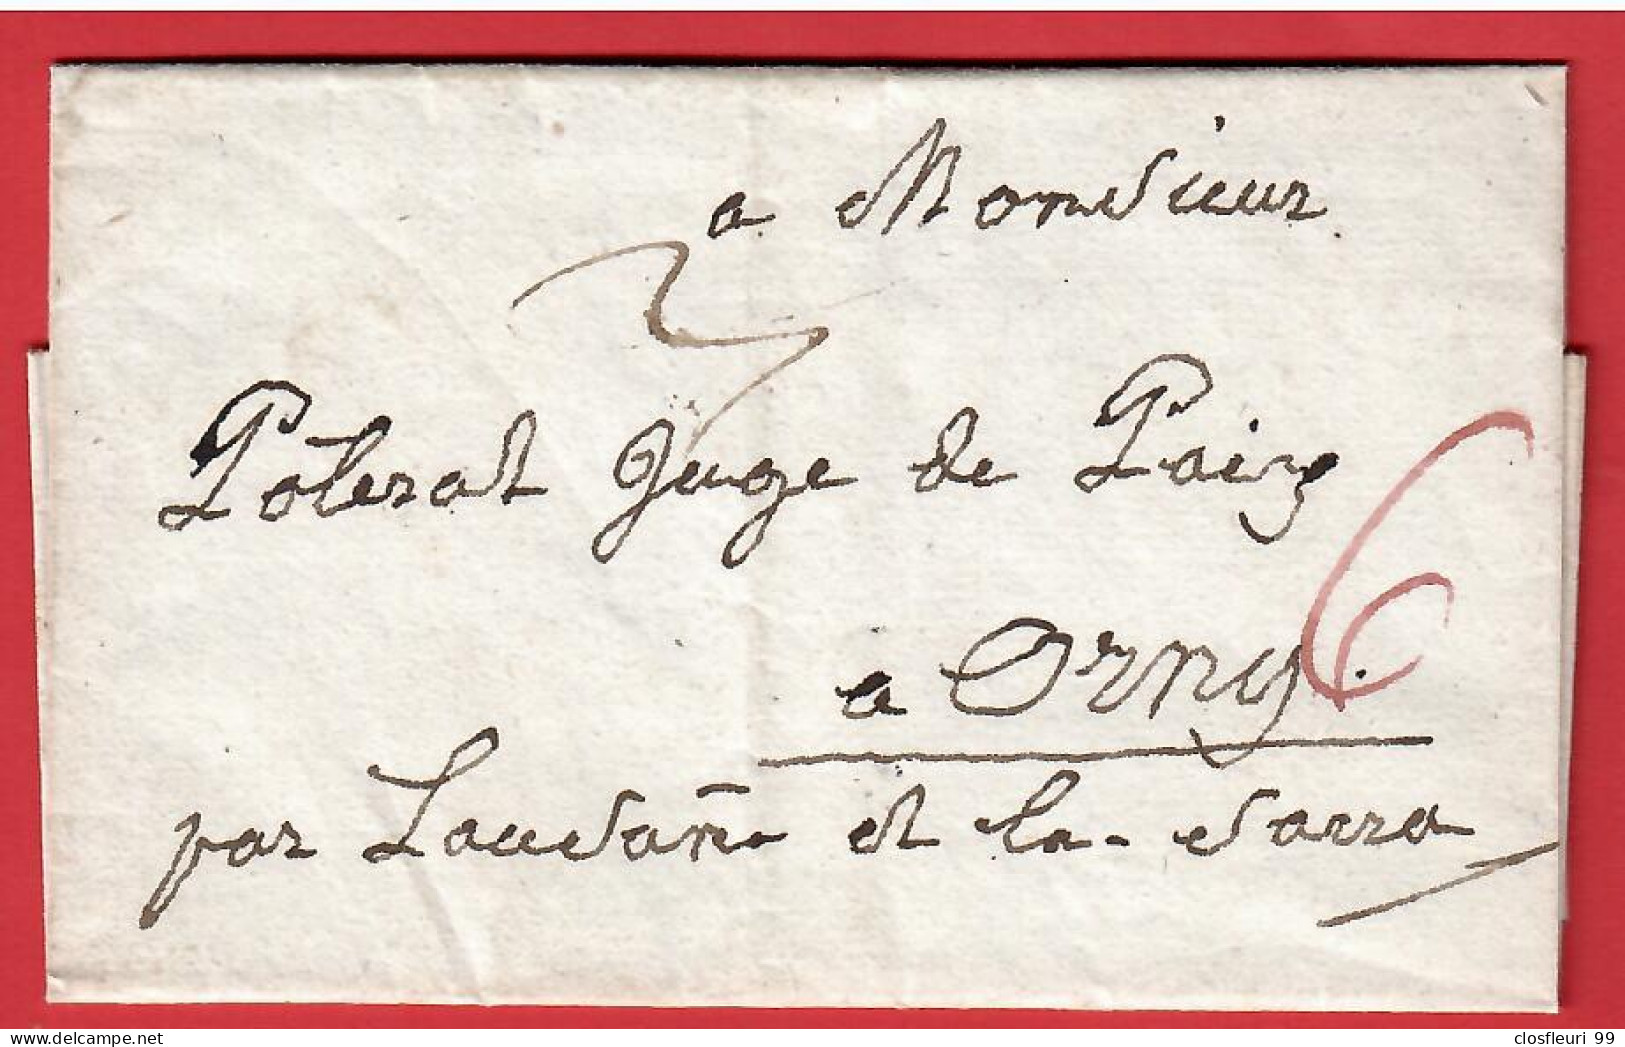 a Monsieur.
Polerat Juge de Paix
a Orny.
6
par Lausañe et la-Sarra
delcampe.net
closfleuri 99